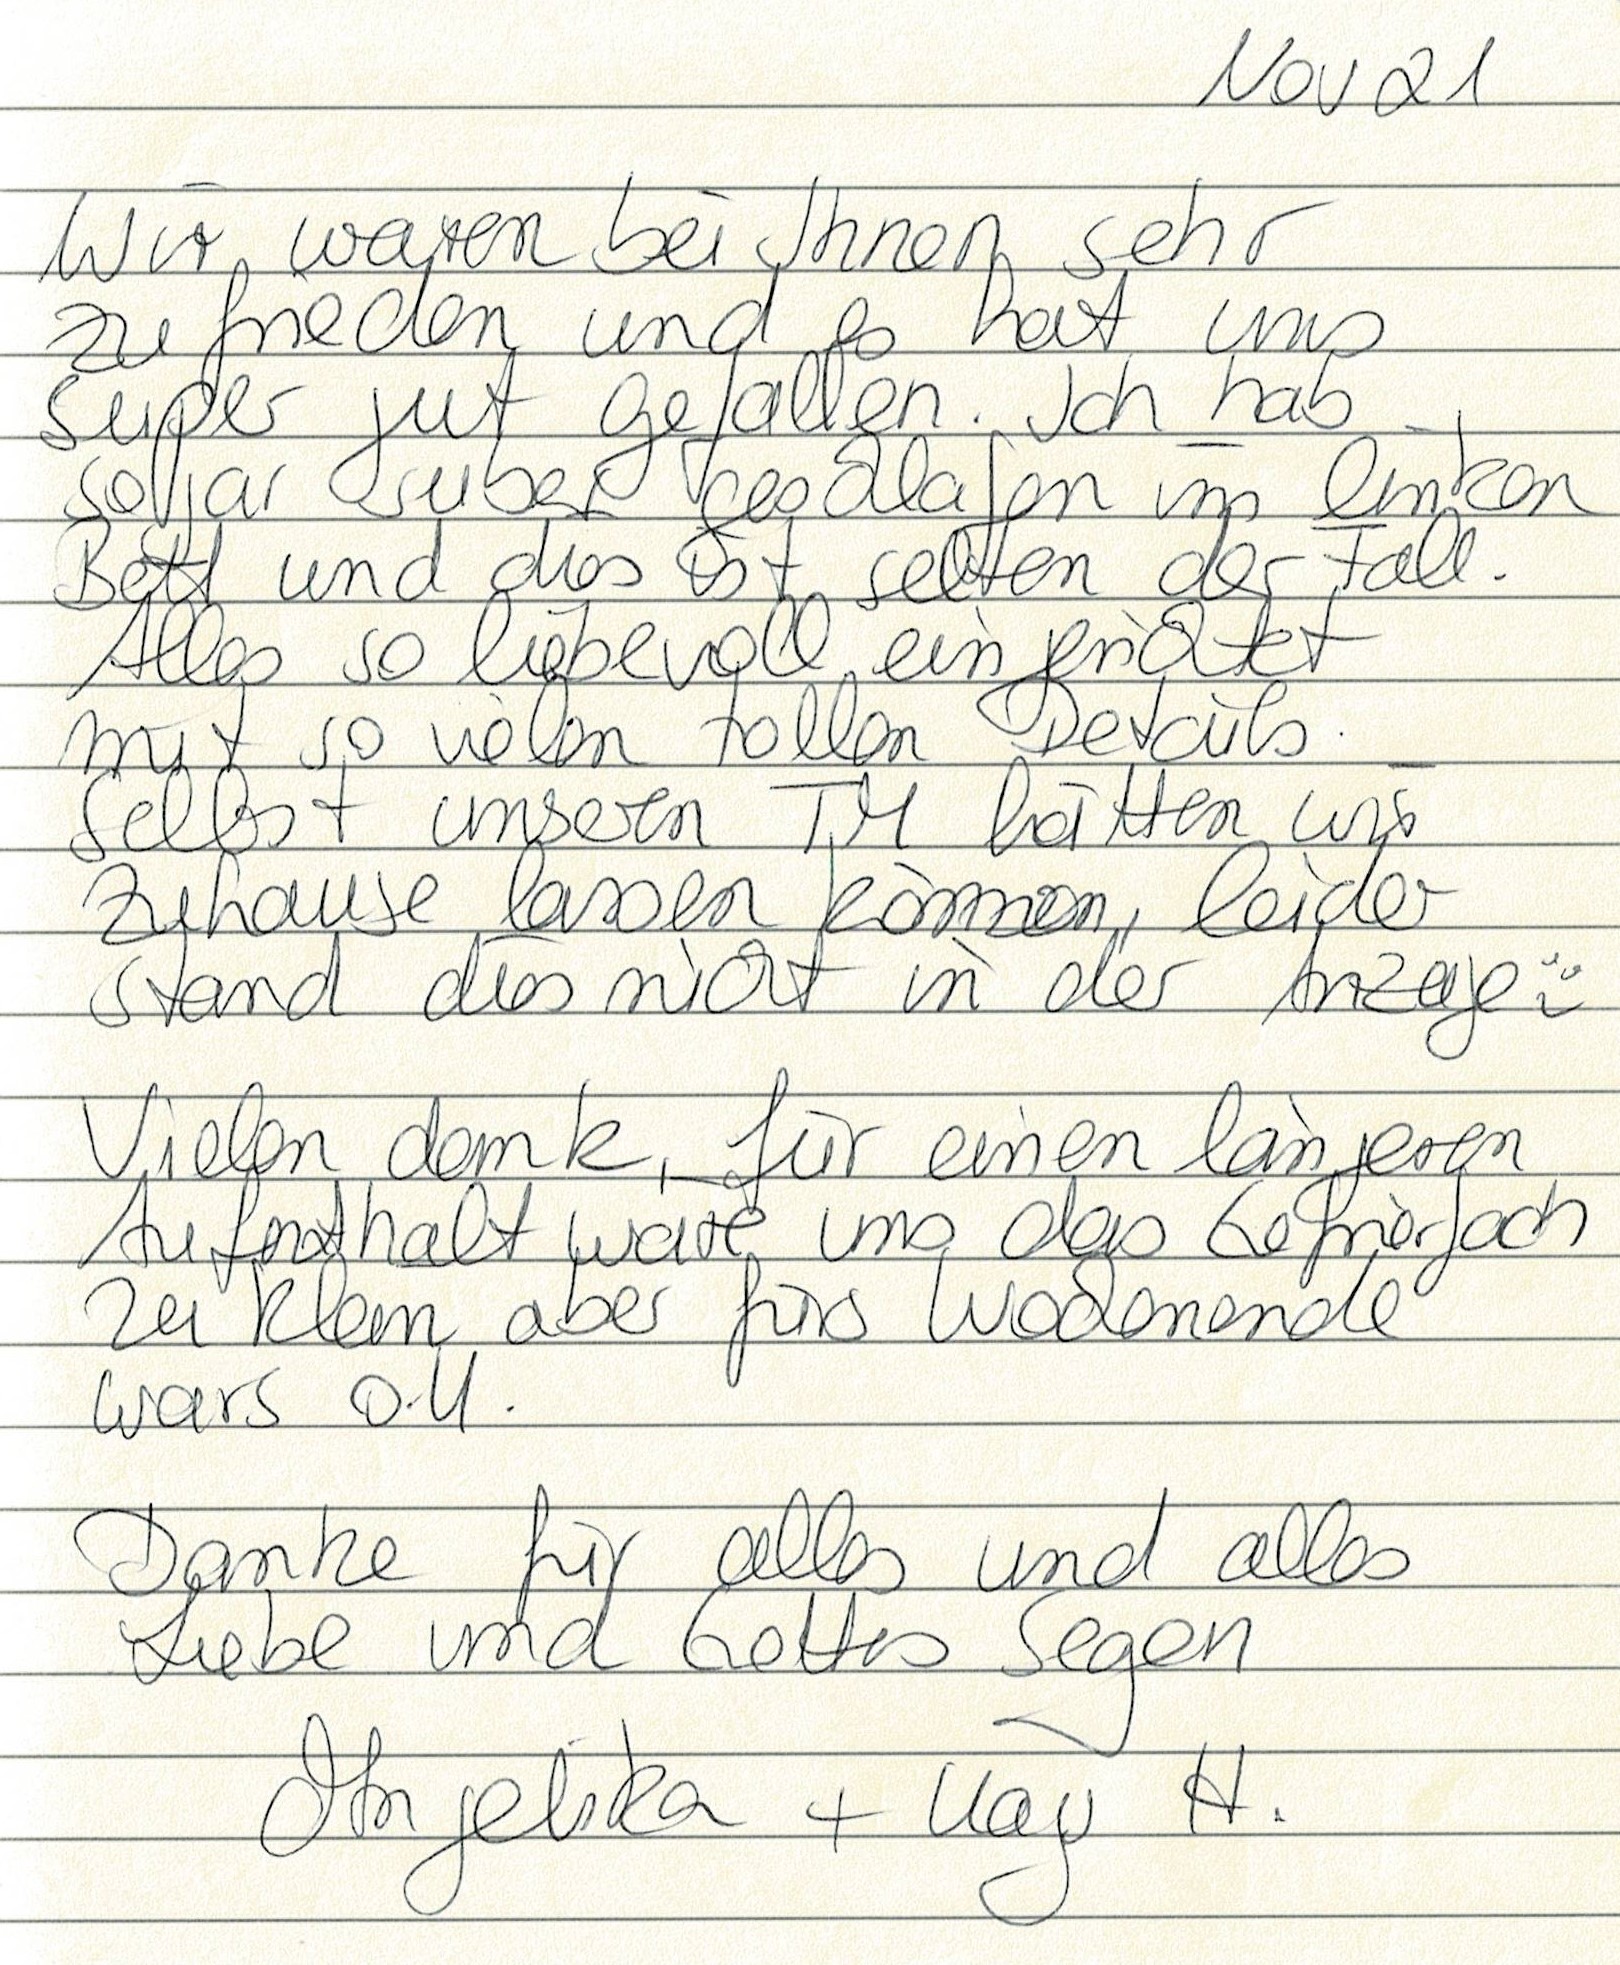 Nov 21
Wir waren bei Ihnen sehr
zufrieden und es hat uns
super gut gefallen. Ich hab
sogar super geschlafen im linken
Bett und dies ist selten der Fall.
Alles so liebevoll eingerichtet
mit so vielen tollen Details.
Selbst unseren TM hätten wir
zuhause lassen können, leider
stand dies nicht in der Anzeige
Vielen dank, für einen längeren
Aufenthalt wäre uns das Gefrierfach
zu klein aber fürs Wochenende
wars o.k.
Danke für alles und alles
Liebe und Gottes Segen
Angelika + Kay H.